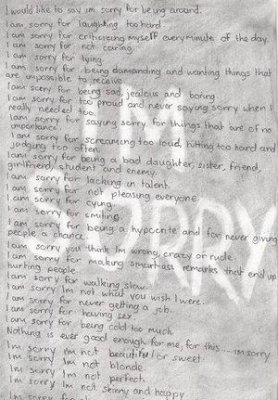 I would like to say im sorry for being around.
I am sorry for laughing too hard
I am sorry for criticising myself every minute of the day.
I am sorry for not caring
I am sorry for lying.
I am sorry for being demanding and wanting things that
are impossible to receive.
I am sorry for being sad, jealous and boring
I am sorry for too proud and never saying sorry when I
really needed too.
I am sorry for saying sorry for things that are of no
importance.
I am sorry for screaming too loud, hitting too hard and
judging too often.
I am sorry for being a bad daughter, sister, friend,
girlfriend, student and enemy.
I am sorry for lacking in talent
I am sorry for not pleasing everyone
I am sorry for crying
I am sorry for smiling
I am sorry for being a hypocrite and for never giving
people a chance.
I am sorry you think Im wrong, crazy or rude.
I am sorry for making smartass remarks that end up
hurting people.
I am sorry for walking slow.
I am sorry Im not what you wish I were.
I am sorry for never getting a job.
I am sorry for having sex
I am sorry for being cold too much
Nothing is ever good enough for me, for this.... im sorry
Im sorry im not beautiful or sweet.
Im sorry im not blonde
Im sorry im not perfect
Im sorry im not skinny and happy
Im sorry
I'M
SORRY